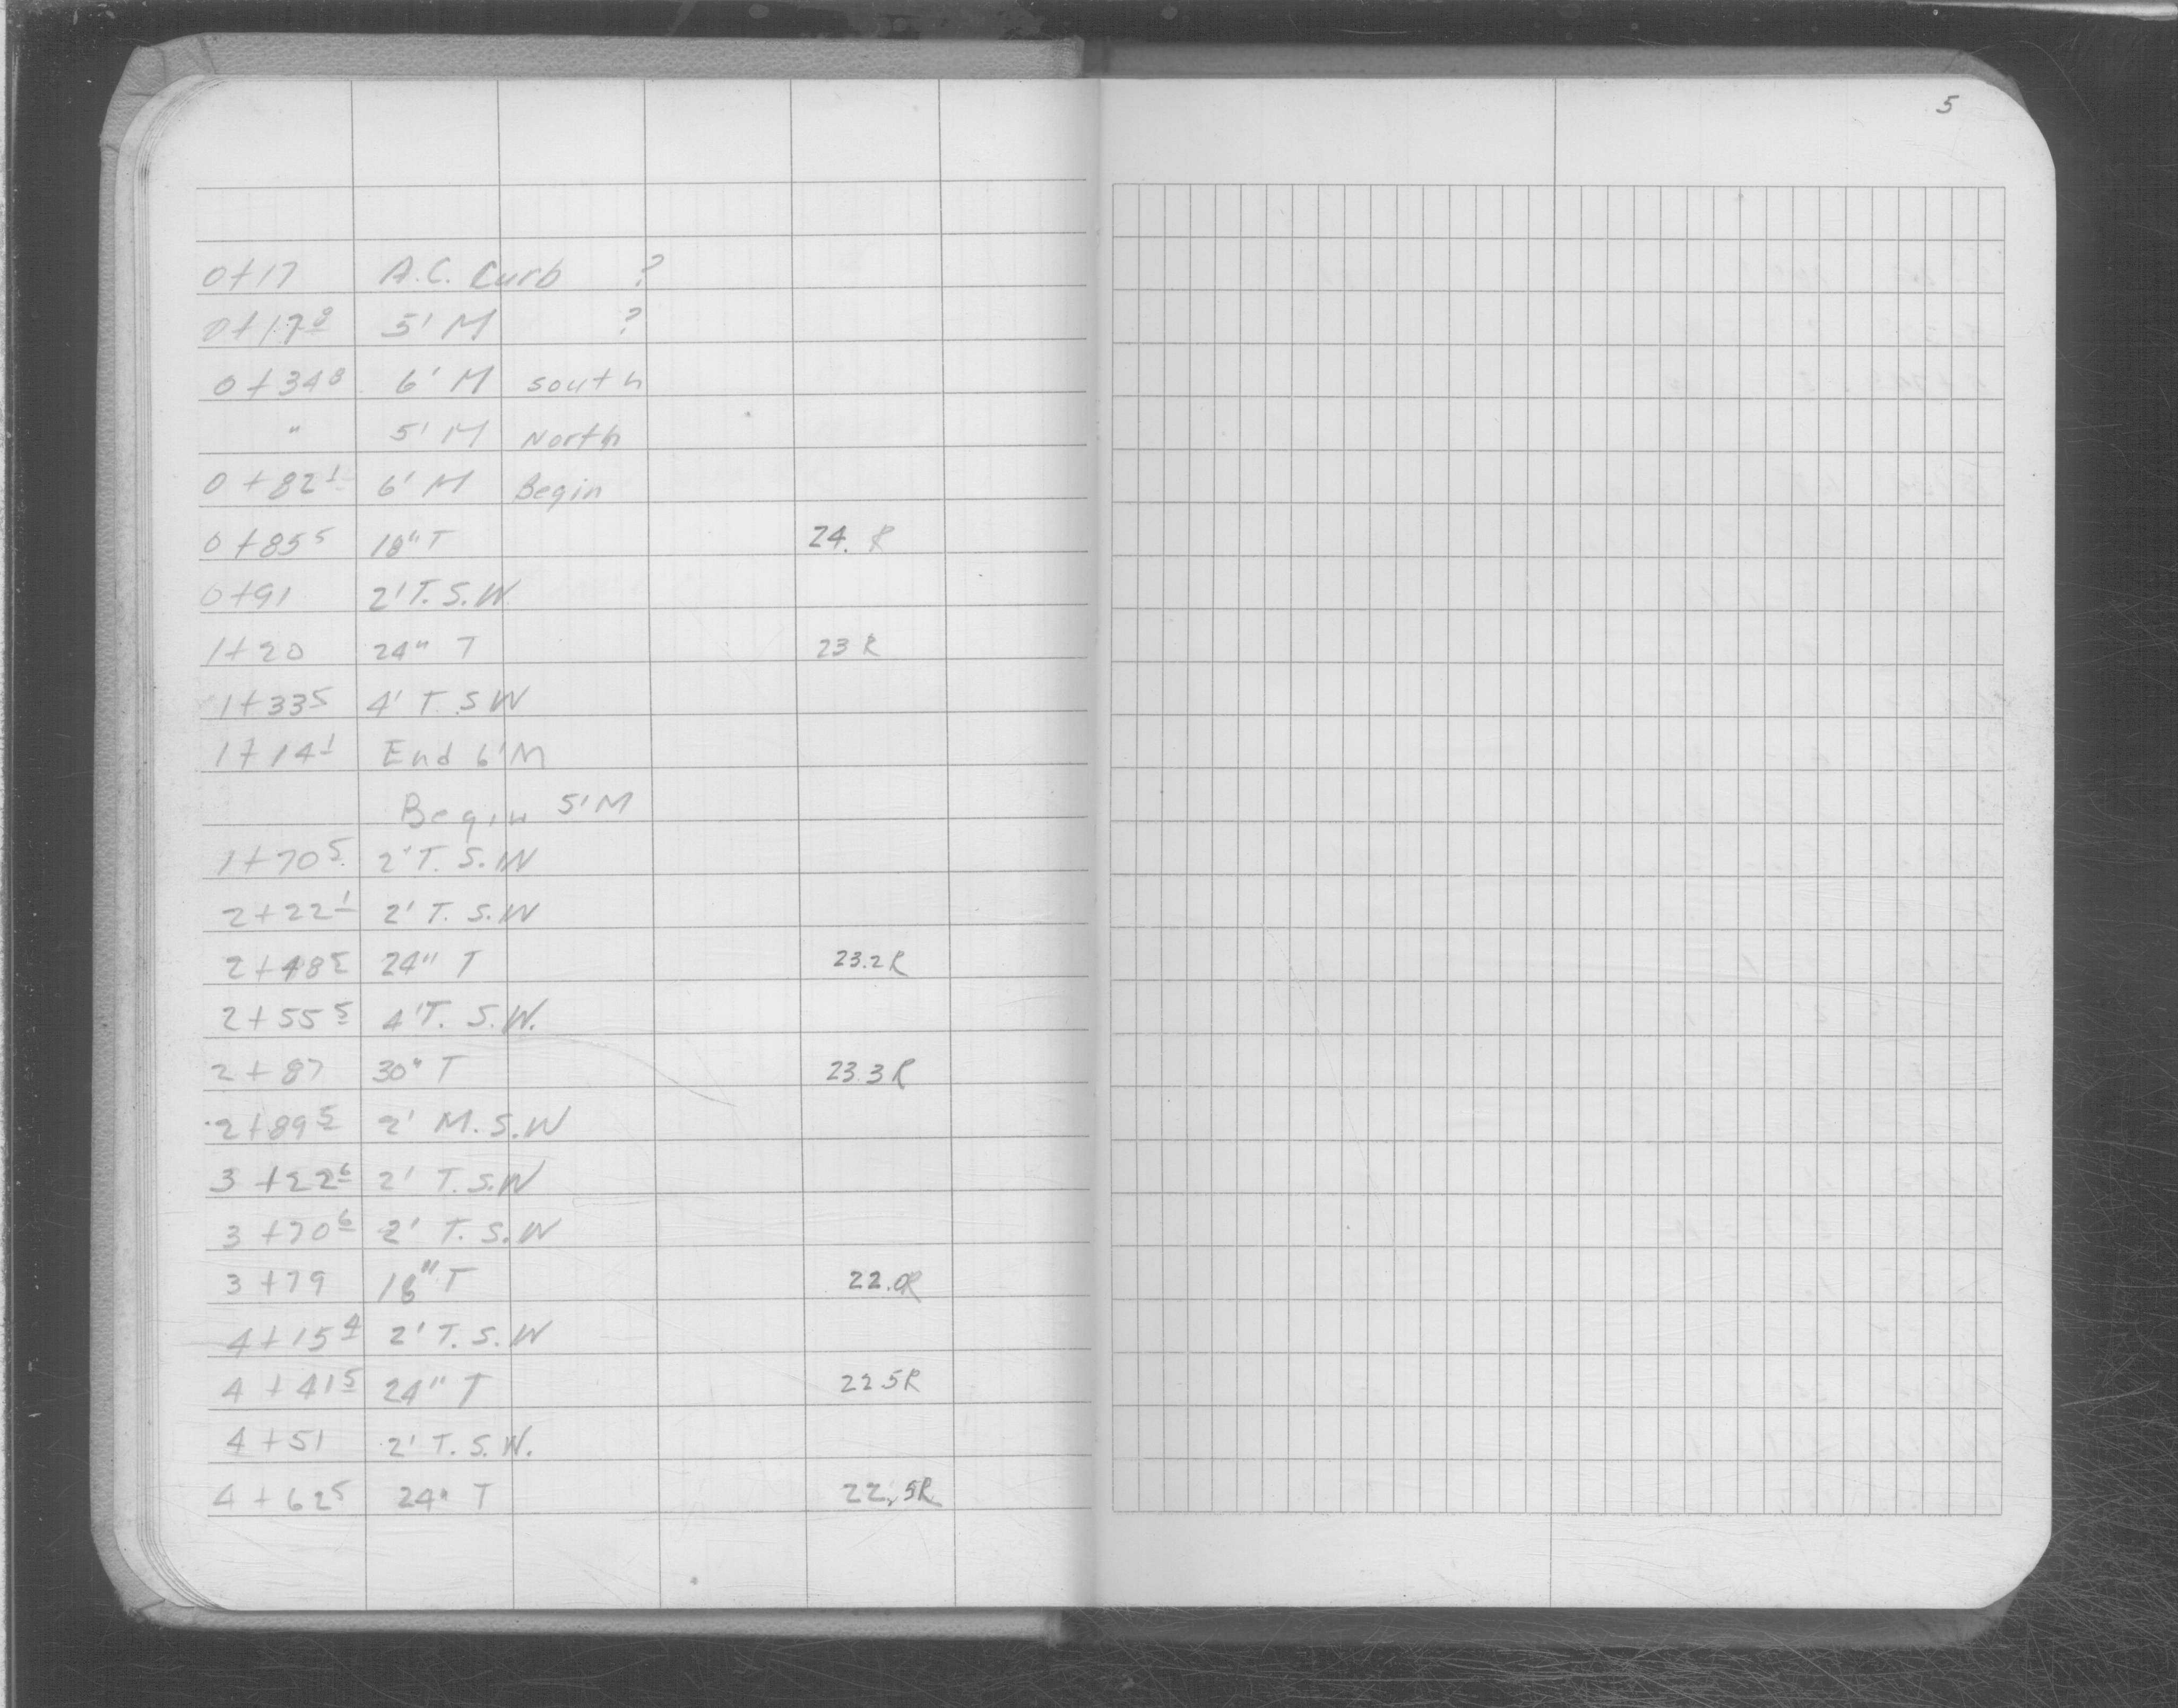 5
0+17 A.C. Curb ?
0+17⁸ 5' M ?
0+34⁸ 6' M south
" 5' M North
0+82¹ 6' M Begin
0+85⁵ 18" T 24. R
0+91 2' T. S.W.
1+20 24" T 23 R
1+33⁵ 4' T. S W
1+14¹ End 6' M
Begin 5' M
1+70⁵ 2' T. S.W
2+22¹ 2' T. S.W
2+48⁵ 24" T 23.2 R
2+55⁵ 4' T. S.W.
2+87 30" T 23.3 R
2+89⁵ 2' M. S.W
3+22⁶ 2' T. S.W
3+70⁶ 2' T. S.W
3+79 18" T 22.0R
4+15⁴ 2' T. S.W
4+41⁵ 24" T 22 5R
4+51 2' T. S.W.
4+62⁵ 24" T 22.5R